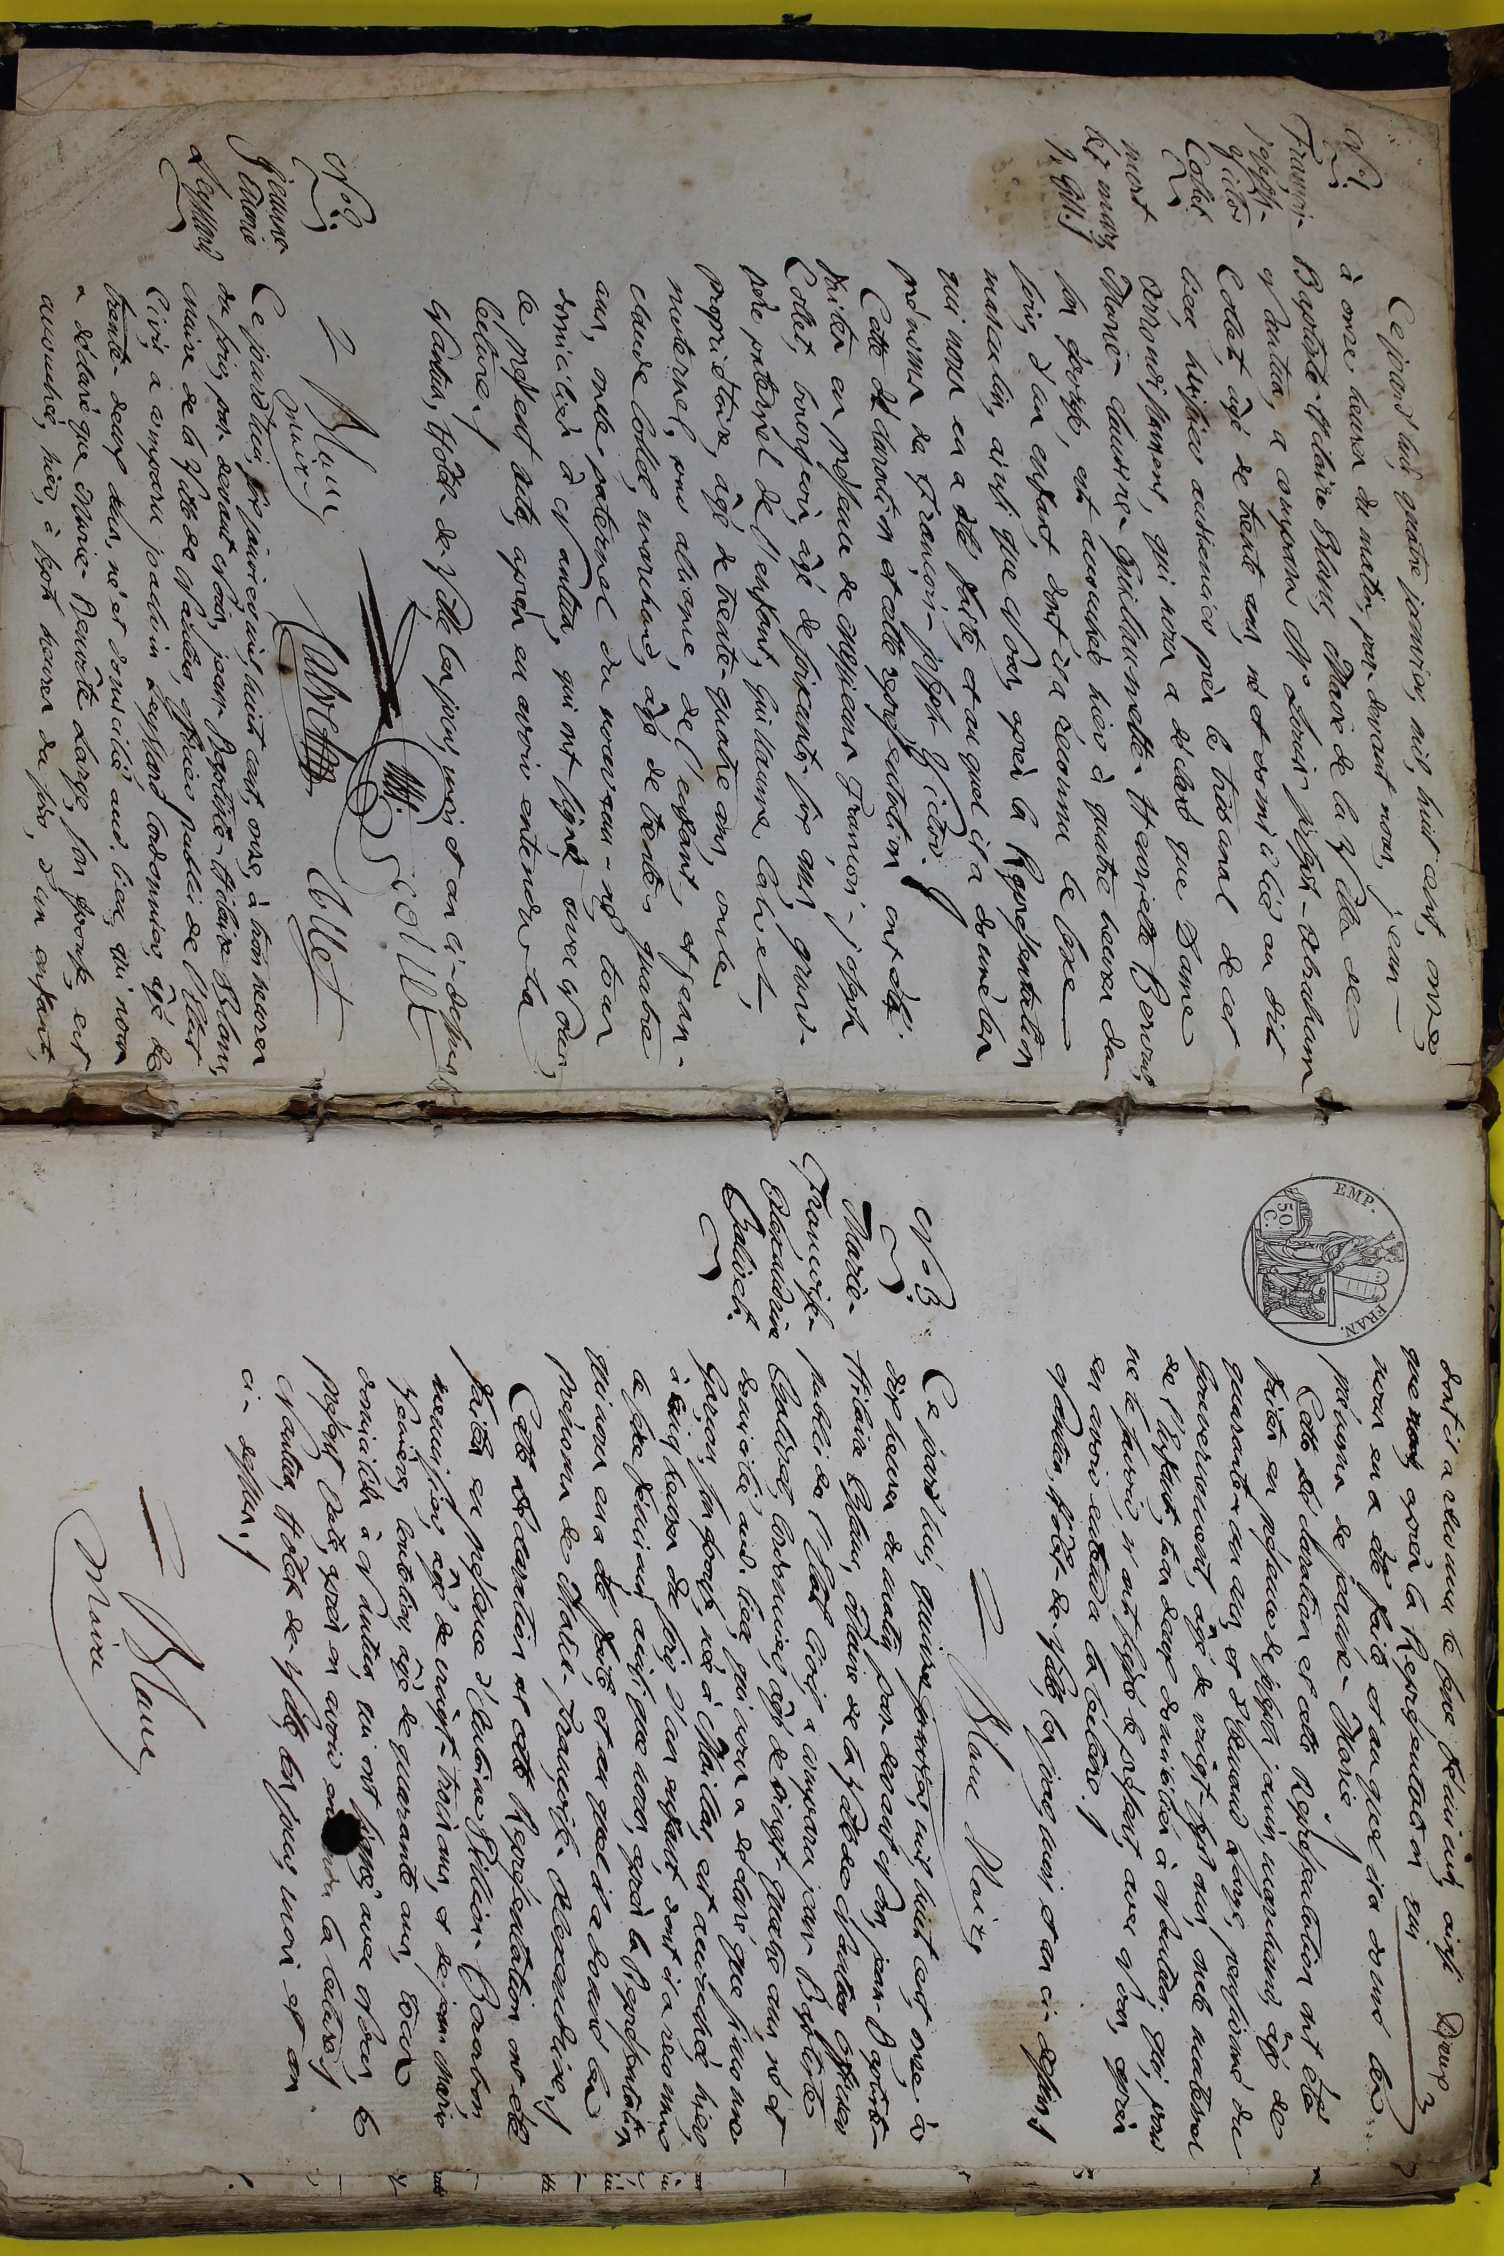 N.° 1
François-
joseph-
Victor
Collet
mort
le mars
Ce jourd'hui, quatre janvier, mil huit cent, onze,
à onze heures du matin, par devant nous, jean-
Baptiste-hilaire Blanc, Maire de la Ville de
Nantua, a comparu Mr. Louis joseph-Abraham
Collet âgé de trente ans, né et domicilié au dit
lieu, huissier audiencier près le tribunal de cet
arrondissement, qui nous a déclaré que Dame
Marie-claudine-Guillaumette-Henriette
son épouse, est accouchée hier à quatre heures du
soir, d'un enfant, dont il a reconnu le sexe
masculin, ainsi que Nous, après la Représentation
qui nous en a été faite, et au quel il a donné les
prénoms de François-joseph-Victor.
Cette déclaration et cette représentation ont été
faites en présence de Messieurs François-joseph
Collet, bourgeois, âgé de soixante-six ans, grand-
père paternel de l'enfant, Guillaume Cabet,
propriétaire, âgé de trente-quatre ans, oncle
maternel, par alliance, de l'enfant, et jean-
claude Collet, marchand, âgé de trente-quatre
ans, oncle paternel du nouveau-né, tous
domiciliés à Nantua, qui ont signé avec Nous,
le présent acte, après en avoir entendu la
lecture.
Nantua, hôtel-de-Ville les jour, mois et an ci-dessus.
2
Blanc
maire
Collet
N.° 2
jeanne
Marie
Leyssard
Ce jourd'hui, six janvier, mil, huit cent, onze, à trois heures
du soir, par devant Nous, jean-Baptiste-hilaire Blanc,
maire de la Ville de Nantua, officier public de l'Etat
Civil, a comparu joachim Leyssard Cordonnier, âgé de
trente-deux ans, né et domicilié aud. lieu, qui nous
a déclaré que Marie-Benoîte Large, son épouse, est
accouchée, hier, à sept heures du soir, d'un enfant,
EMP. FRAN.
50 C.
Deux
dont il a reconnu le sexe féminin, ainsi
que nous, après la Représentation qui
nous en a été faite, et au quel il a donné les
prénoms de jeanne-Marie.
Cette déclaration et cette Représentation ont été
faites en présence de joseph jantin, marchand, âgé de
quarante-un ans, et d'Armand Large, pensionné du
Gouvernement, âgé de vingt-sept ans, oncle maternel
de l'enfant, tous deux domiciliés à Nantua, qui, pour
ne le savoir, n'ont signé le présent, avec Nous, après
en avoir entendu la lecture.
Nantua, hôtel-de-Ville, les jour, mois et an ci-dessus.
Blanc Maire
N.° 3
Marie-
Françoise-
Alexandrine
Balivet.
Ce jourd'hui, quinze janvier, mil, huit cent, onze à
dix heures du matin, par devant Nous, jean-Baptiste-
Hilaire Blanc, Maire de la Ville de Nantua officier
public de l'Etat Civil, a comparu jean Baptiste
Balivet, Cordonnier, âgé de vingt-quatre ans, né et
domicilié aud. lieu, qui nous a déclaré que
Garçon, son épouse, née à Maillat, est accouchée, hier
à cinq heures du soir, d'un enfant dont il a reconnu
le sexe féminin, ainsi que nous, après la Représentation
qui nous en a été faite, et au quel il a donné les
prénoms de Marie-Françoise-Alexandrine.
Cette déclaration et cette Représentation ont été
faites en présence d'Antoine
menuisier, âgé de vingt-trois ans, et de jean marie
coutelier, âgé de quarante ans, tous
domiciliés à Nantua, qui ont signé avec Nous, le
présent acte, après en avoir la lecture.
Nantua, Hôtel-de-Ville, les jour, mois et an
ci-dessus.
Blanc
Maire